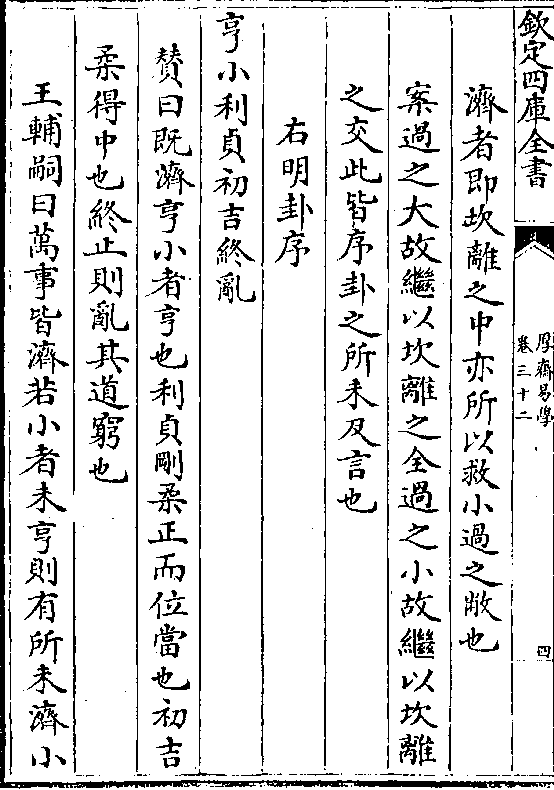 欽定四庫全書
厚齋易學
卷三十二
四
濟者即坎離之中亦所以救小過之敝也
案過之大故繼以坎離之全過之小故繼以坎離
之交此皆序卦之所未及言也
右明卦序
亨小利貞初吉終亂
贊曰既濟亨小者亨也利貞剛柔正而位當也初吉
柔得中也終止則亂其道窮也
王輔嗣曰萬事皆濟若小者未亨則有所未濟小